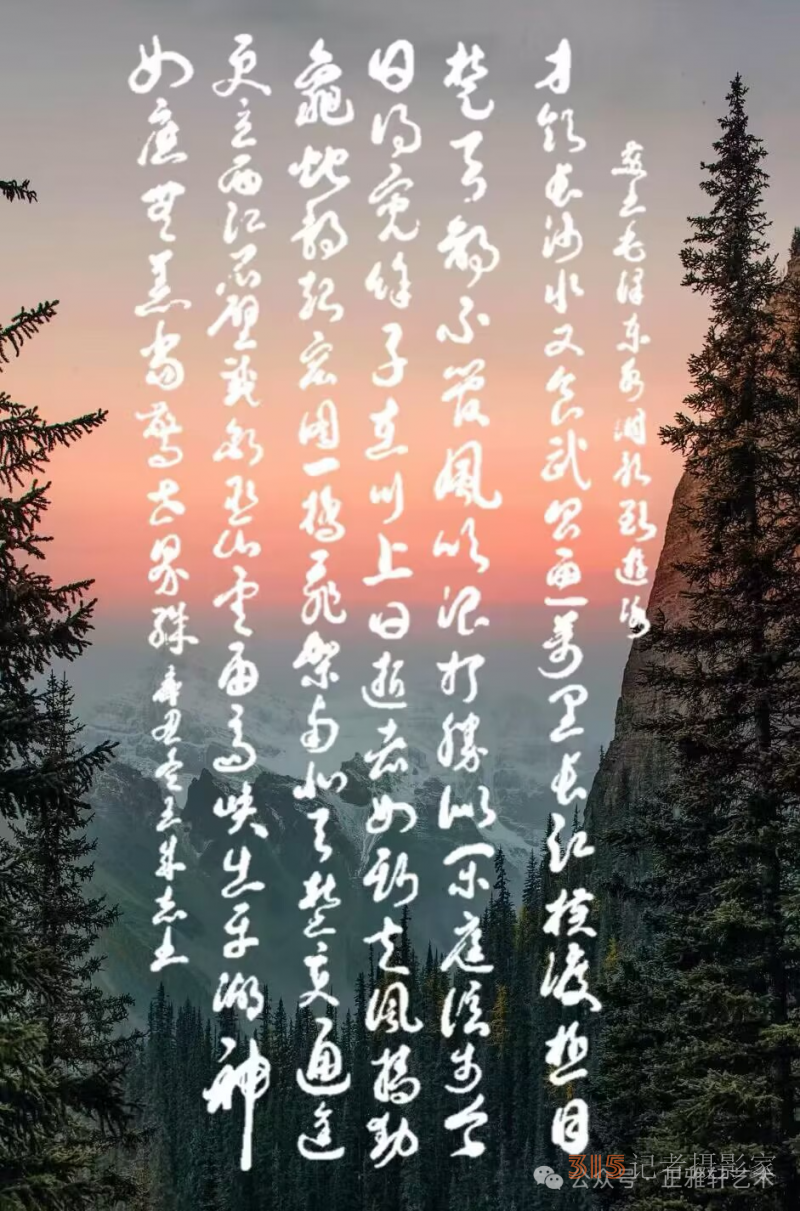 毛泽东水调歌头游泳
才饮长沙水又食武昌鱼万里长江横渡极目
楚天舒不管风吹浪打胜似闲庭信步今
日得宽余子在川上曰逝者如斯夫风樯动
龟蛇静起宏图一桥飞架南北天堑变通途
更立西江石壁截断巫山云雨高峡出平湖神
女应无恙当惊世界殊 辛丑冬
315记者摄影家
公众号 · 正雅轩艺术